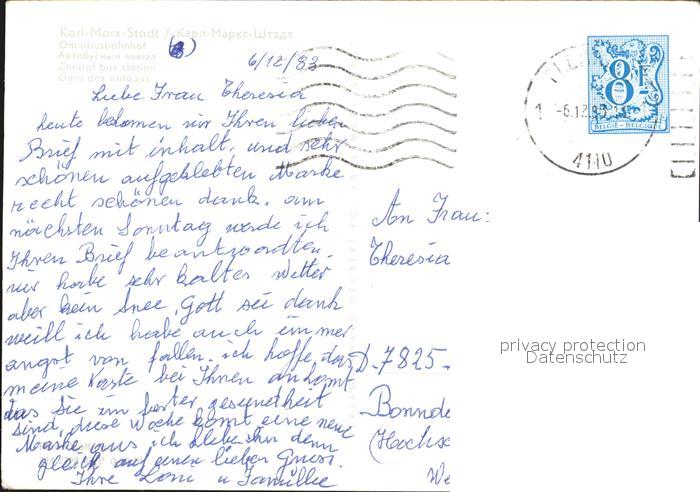 Karl-Marx-Stadt / Карл-Маркс-Штадт
Omnibusbahnhof
Автобусный вокзал
Central bus station
Gare des autobus
6/12/83
Liebe Frau Theresia
heute bekomen wir Ihren lieben
Brief mit inhalt, und sehr
schönen aufgeklebten Marke
recht schönen dank. am
nächsten Sonntag werde ich
Ihren Brief beantwoordten.
wir habe sehr kaltes Witter
aber kein Snee, Gott sei dank
weill ich habe auch immer
angst van fallen. ich hoffe das
meine Karte bei Ihnen ankomt
das Sie im fester gesundheit
sind, diese Woche komt eine neue
Marke aus ich klebe Ihn denn
gleich auf einen lieben Gruss.
Ihre Loni u Familie
8F
BELGIË - BELGIQUE
1 -6.12.83
4110
An Frau:
Theresia
D-7825-
Bonndo
(Hochsc
We
privacy protection
Datenschutz